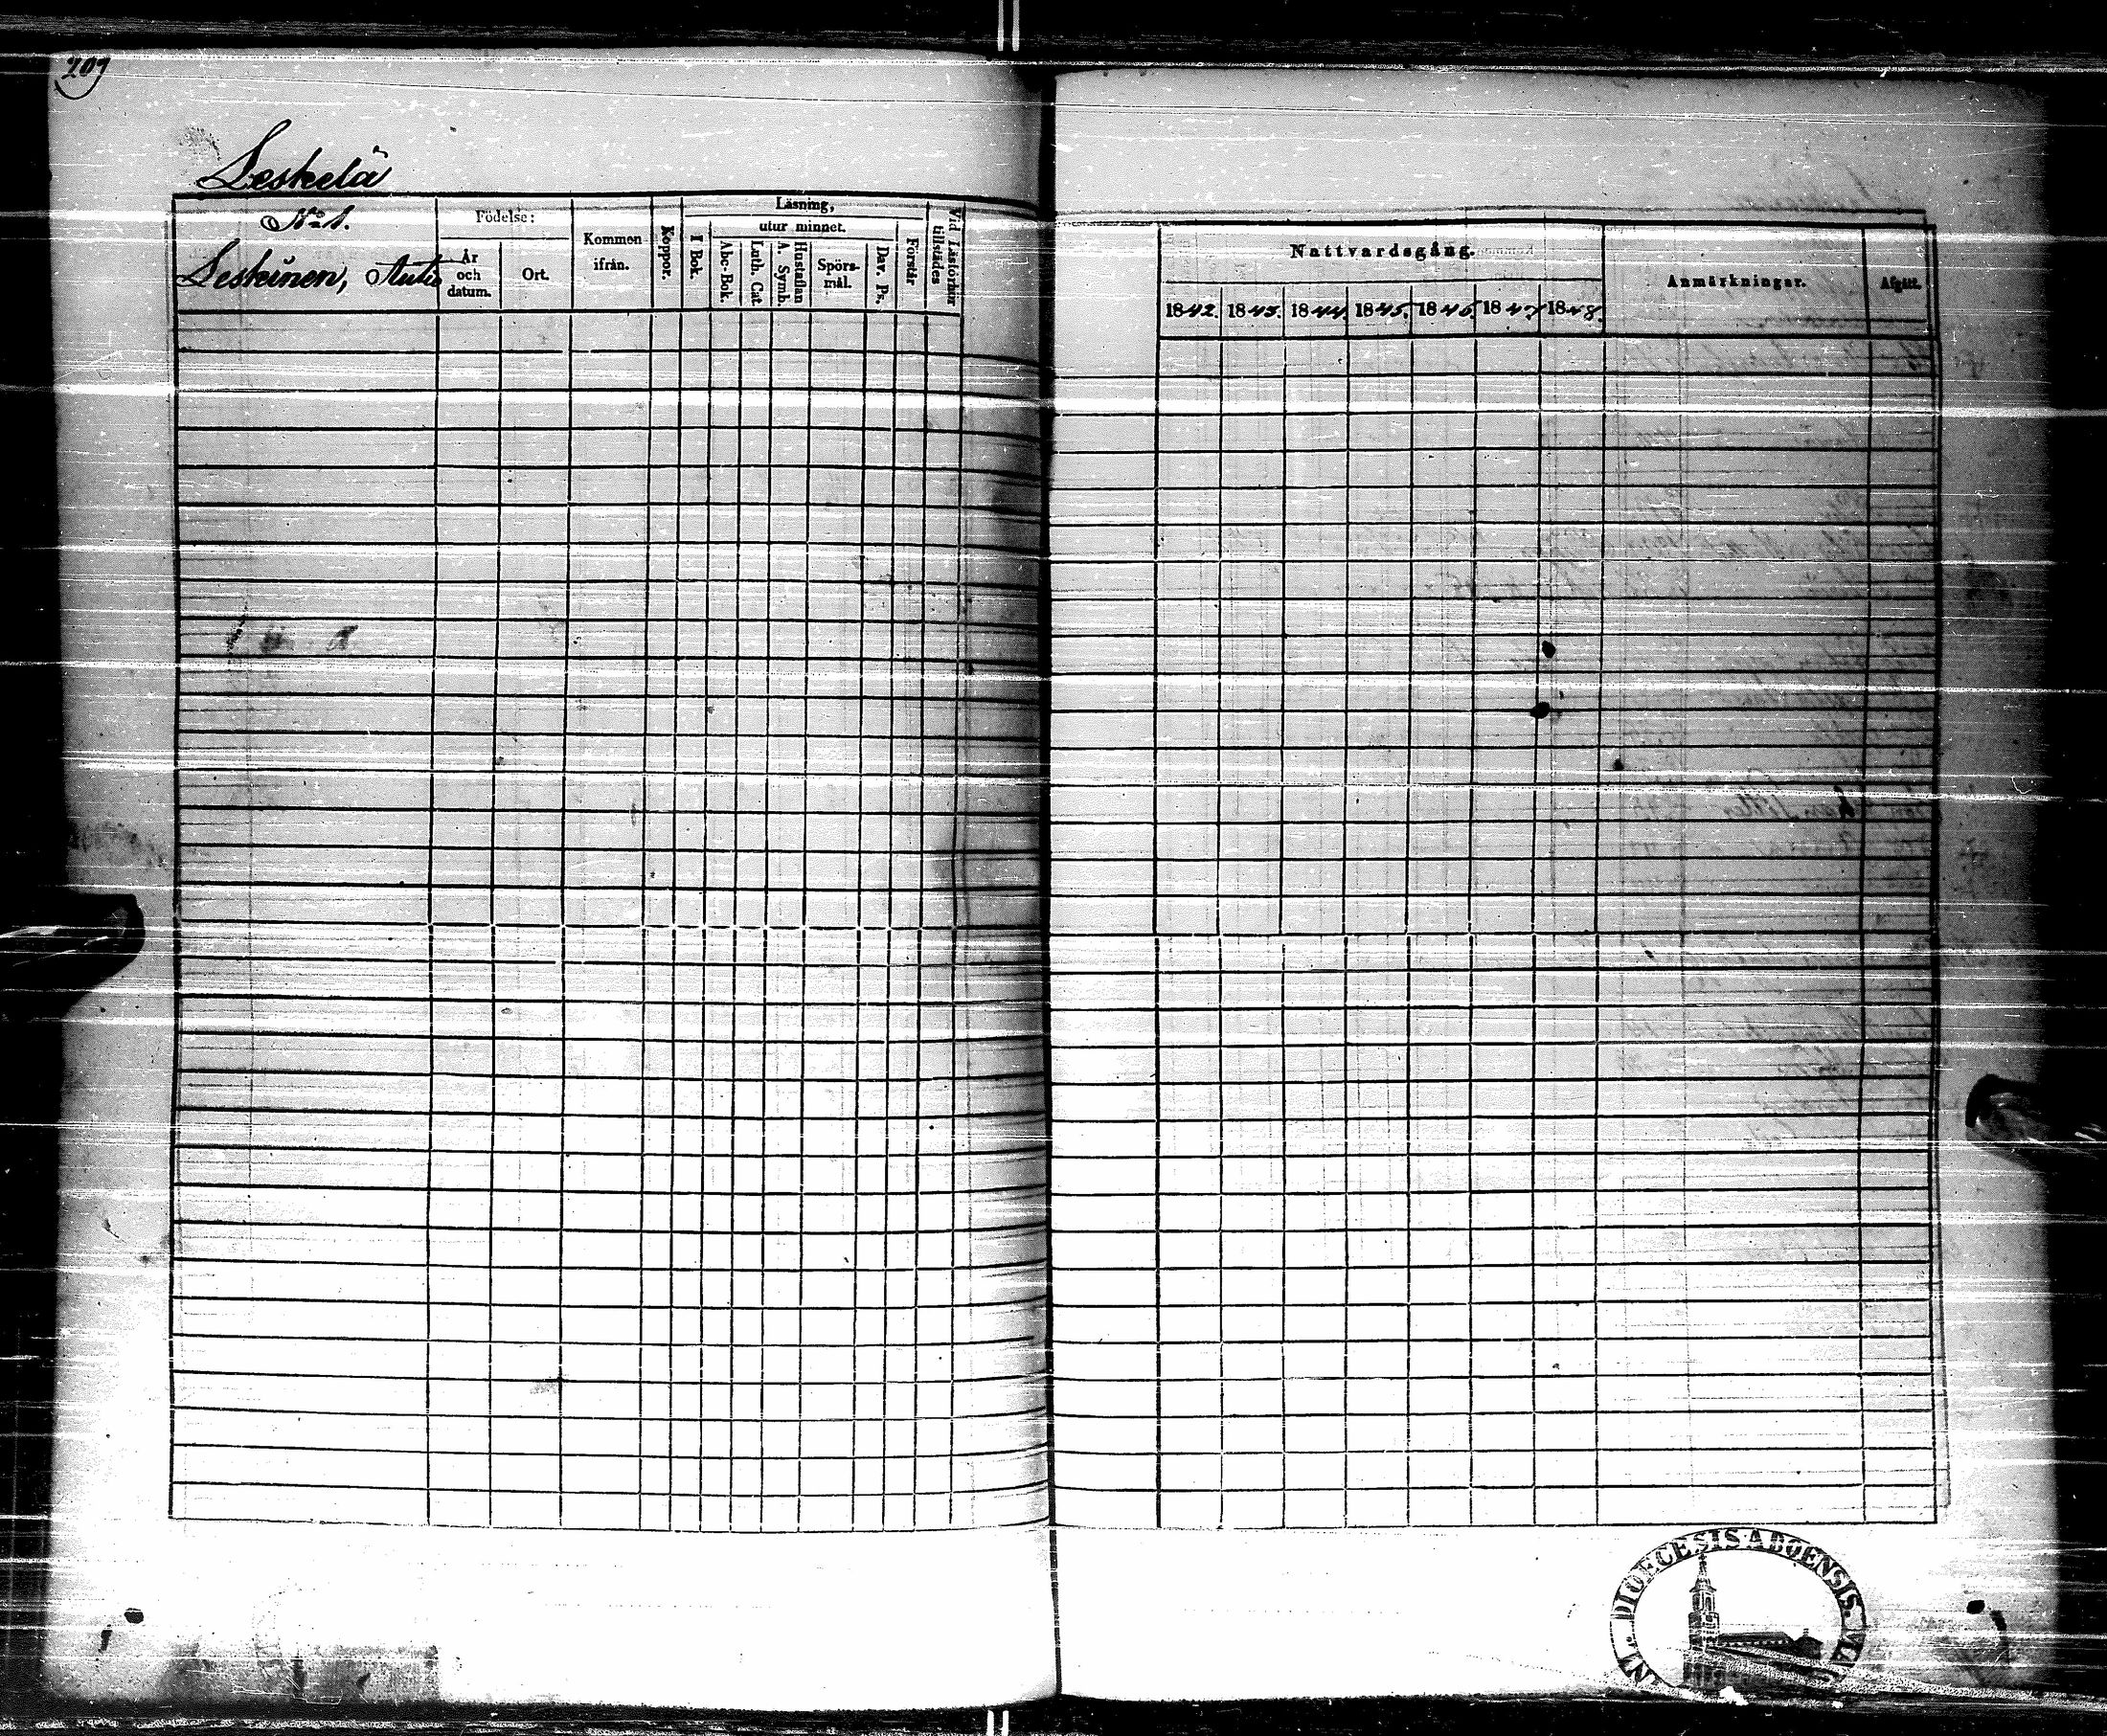 209
Leskelä
No 1.
Leskinen, Autio
Födelse:
År och datum.
Ort.
Kommen ifrån.
Koppor.
Läsning,
I Bok.
utur minnet.
Abc-Bok.
Luth. Cat.
Hustaflan A. Symb.
Spörs-mål.
Dav. Ps.
Förstår
Vid Läsförhör tillstädes
Nattvardsgång.
1842. 1843. 1844. 1845. 1846. 1847 1848.
Anmärkningar.
Afgått.
DIOECESIS ABOENSIS.